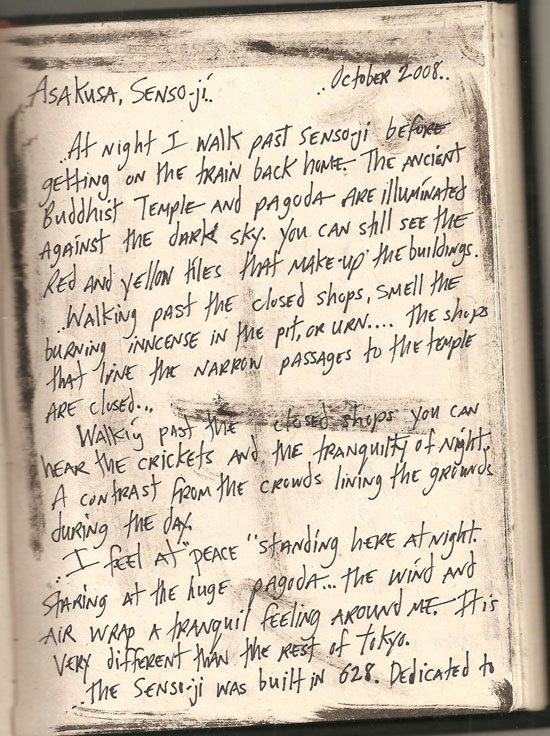 Asakusa, Senso-ji..
..October 2008..
..At night I walk past Senso-ji before
getting on the train back home. The ancient
Buddhist Temple and pagoda are illuminated
against the dark sky. You can still see the
red and yellow tiles that make-up the buildings.
..Walking past the closed shops, smell the
burning inncense in the pit, or urn.... the shops
that line the narrow passages to the temple
are closed...
Walking past the closed shops you can
hear the crickets and the tranquility of night.
A contrast from the crowds lining the grounds
during the day.
..I feel at "peace" standing here at night.
Staring at the huge pagoda... the wind and
air wrap a tranquil feeling around me. It is
very different than the rest of Tokyo.
..The Senso-ji was built in 628. Dedicated to